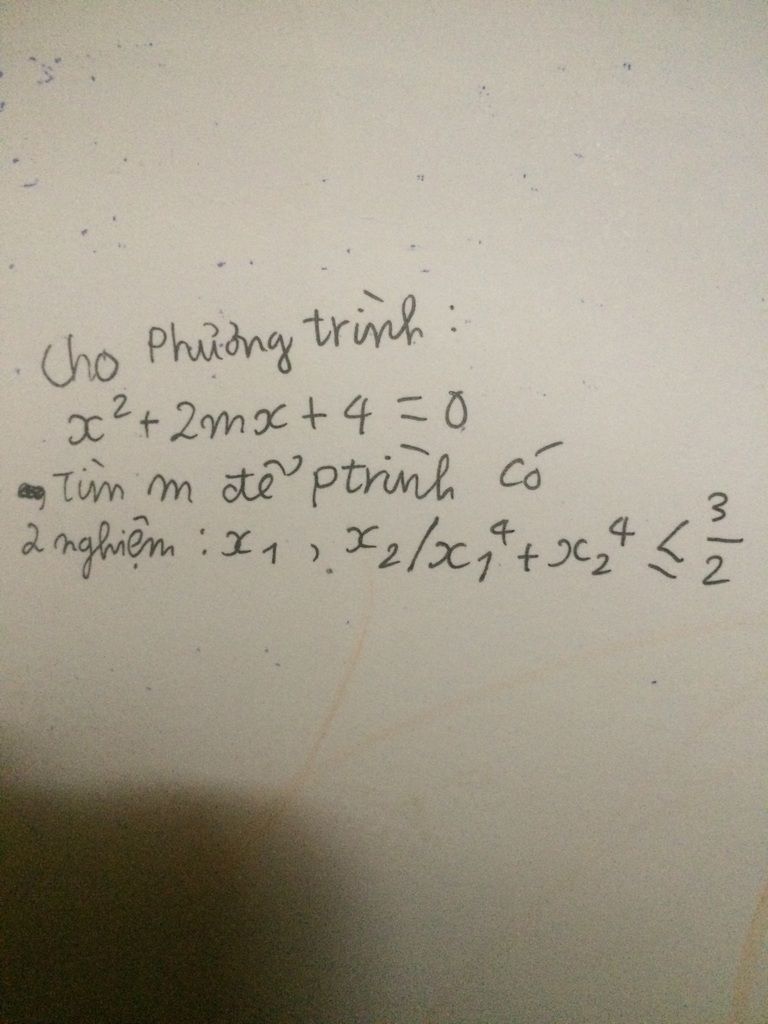 Cho phương trình:
x² + 2mx + 4 = 0
, Tìm m để ptrình có
2 nghiệm: x₁, x₂/x₁⁴ + x₂⁴ ≤ 3/2